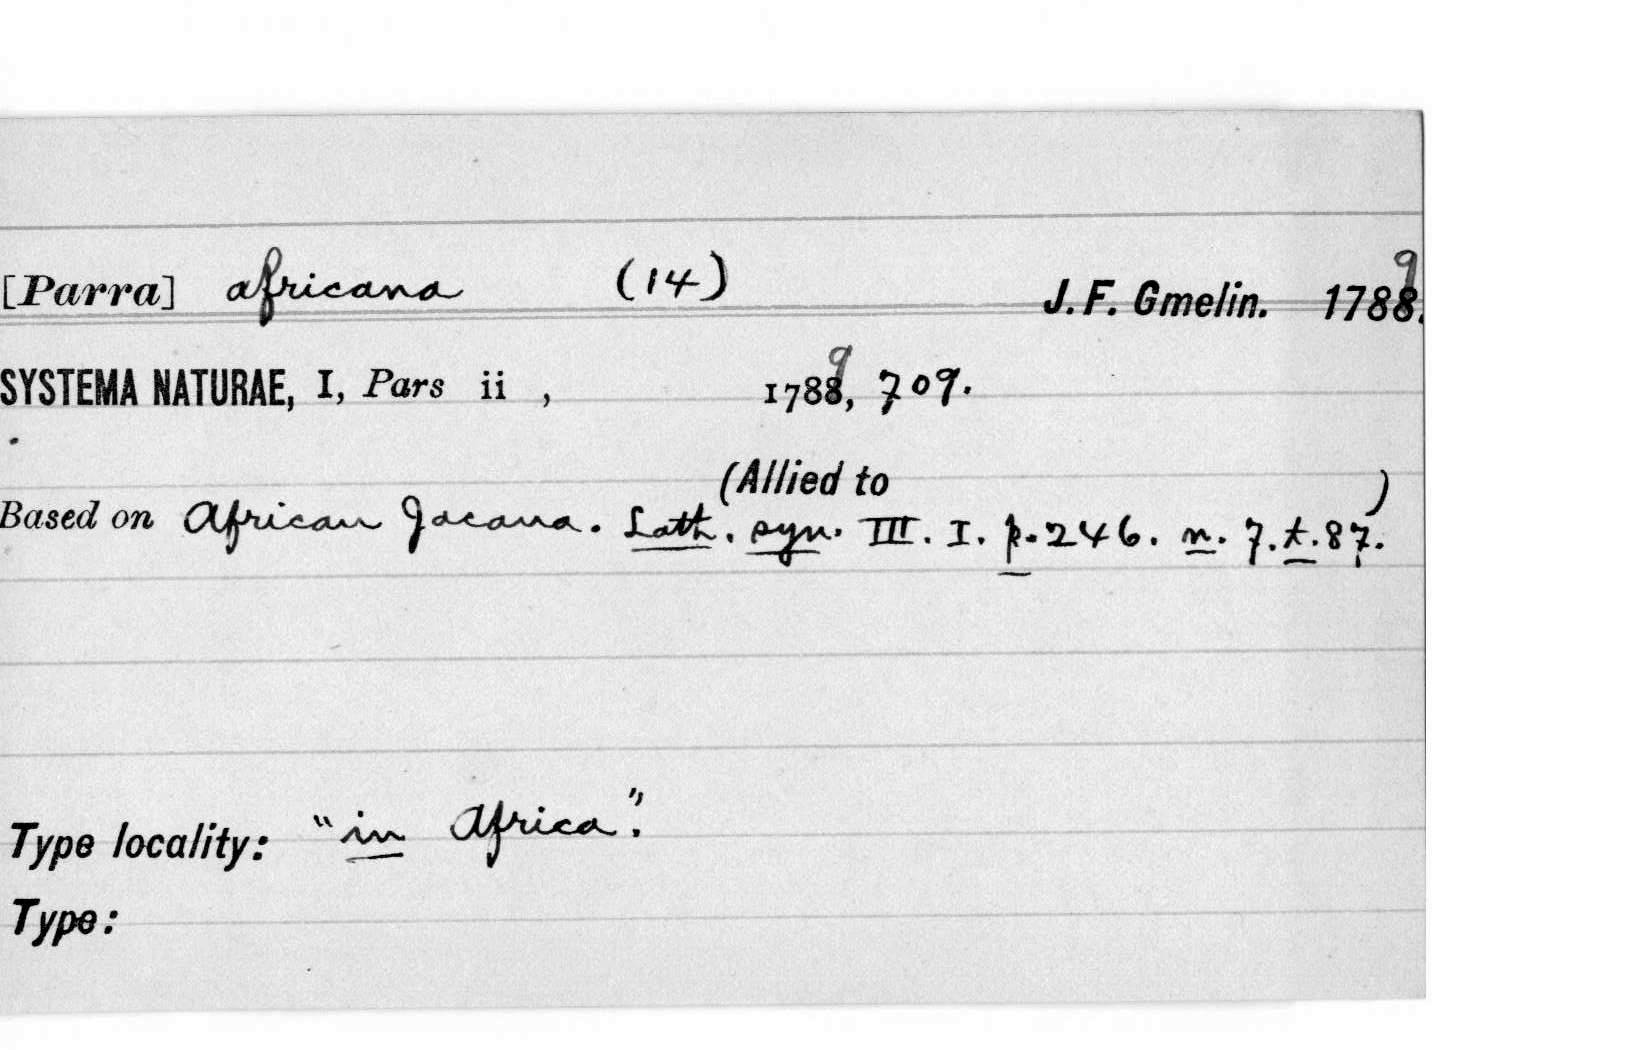 [Parra] africana (14) J. F. Gmelin. 1788. 9
SYSTEMA NATURAE, I, Pars ii , 1788, 9 709.
(Allied to )
Based on African Jacana. Lath. syn. III. I. p. 246. n. 7. t. 87.
Type locality: "in Africa".
Type: